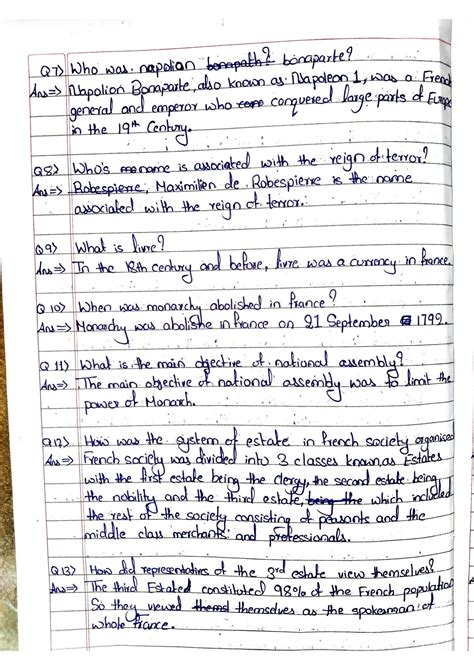 Q7) Who was napolian bonapath? bonaparte?
Ans⇒ Napolion Bonaparte, also known as Napoleon 1, was a French
general and emperor who conquered large parts of Europe
in the 19th Century.
Q8) Who's name is associated with the reign of terror?
Ans⇒ Robespierre, Maximilien de Robespierre is the name
associated with the reign of terror.
Q9) What is livre?
Ans⇒ In the 18th century and before, livre was a currency in france.
Q 10) When was monarchy abolished in france?
Ans⇒ Monarchy was abolishe in france on 21 September 1792.
Q 11) What is the main objective of national assembly?
Ans⇒ The main objective of national assembly was to limit the
power of Monarch.
Q12) How was the system of estate in french society organised
Ans⇒ French society was divided into 3 classes known as Estates
with the first estate being the clergy, the second estate being
the nobility and the third estate, being the which included
the rest of the society consisting of peasants and the
middle class merchants and professionals.
Q 13) How did representatives of the 3rd estate view themselves?
Ans⇒ The third Estated constituted 98% of the French population
So they viewed themsd themselves as the spokesman of
whole france.